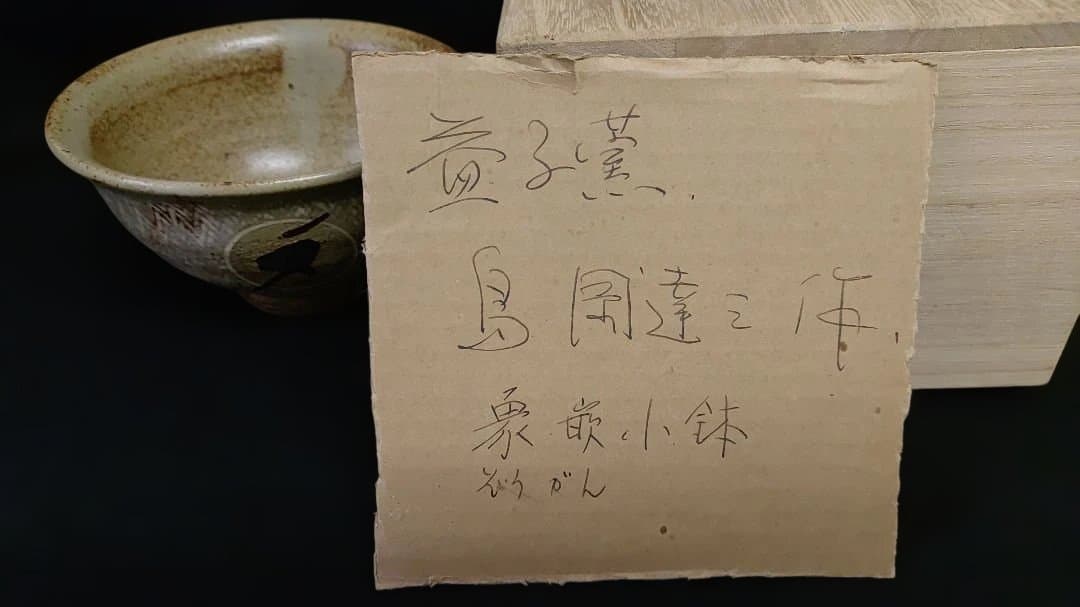 益子窯.
島岡達三作.
象嵌小鉢
ぞうがん